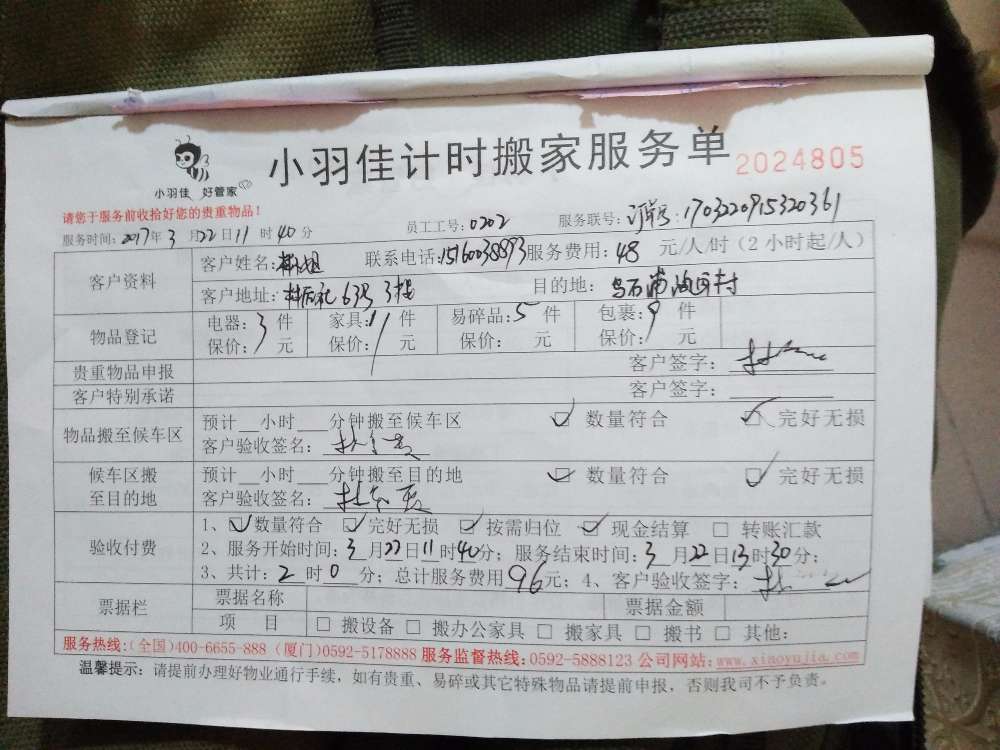 小羽佳计时搬家服务单 2024805
小羽佳 好管家
请您于服务前收拾好您的贵重物品！
服务时间：2017年3月22日11时40分 员工工号：0202 服务联号：订单号：1703220915320361
客户资料 客户姓名： 联系电话：15160038893 服务费用：48 元/人/时（2小时起/人）
客户地址：林后社63号3栋 目的地：乌石浦油画村
物品登记 电器：3件 家具：11件 易碎品：5件 包裹：9件
保价： 元 保价： 元 保价： 元 保价： 元
贵重物品申报 客户签字：
客户特别承诺 客户签字：
物品搬至候车区 预计__小时___分钟搬至候车区 ☑ 数量符合 ☑ 完好无损
客户验收签名：
候车区搬至目的地 预计__小时___分钟搬至目的地 ☑ 数量符合 ☑ 完好无损
客户验收签名：
验收付费 1、☑数量符合 ☑完好无损 ☑按需归位 ☑现金结算 □ 转账汇款
2、服务开始时间：3月22日11时40分；服务结束时间：3月22日13时30分；
3、共计：2时0分；总计服务费用96元；4、客户验收签字：
票据栏 票据名称 票据金额
项 目 □ 搬设备 □ 搬办公家具 □ 搬家具 □ 搬书 □ 其他：
服务热线：(全国)400-6655-888 (厦门)0592-5178888 服务监督热线：0592-5888123 公司网站：www.xiaoyujia.com
温馨提示：请提前办理好物业通行手续，如有贵重、易碎或其它特殊物品请提前申报，否则我司不予负责。